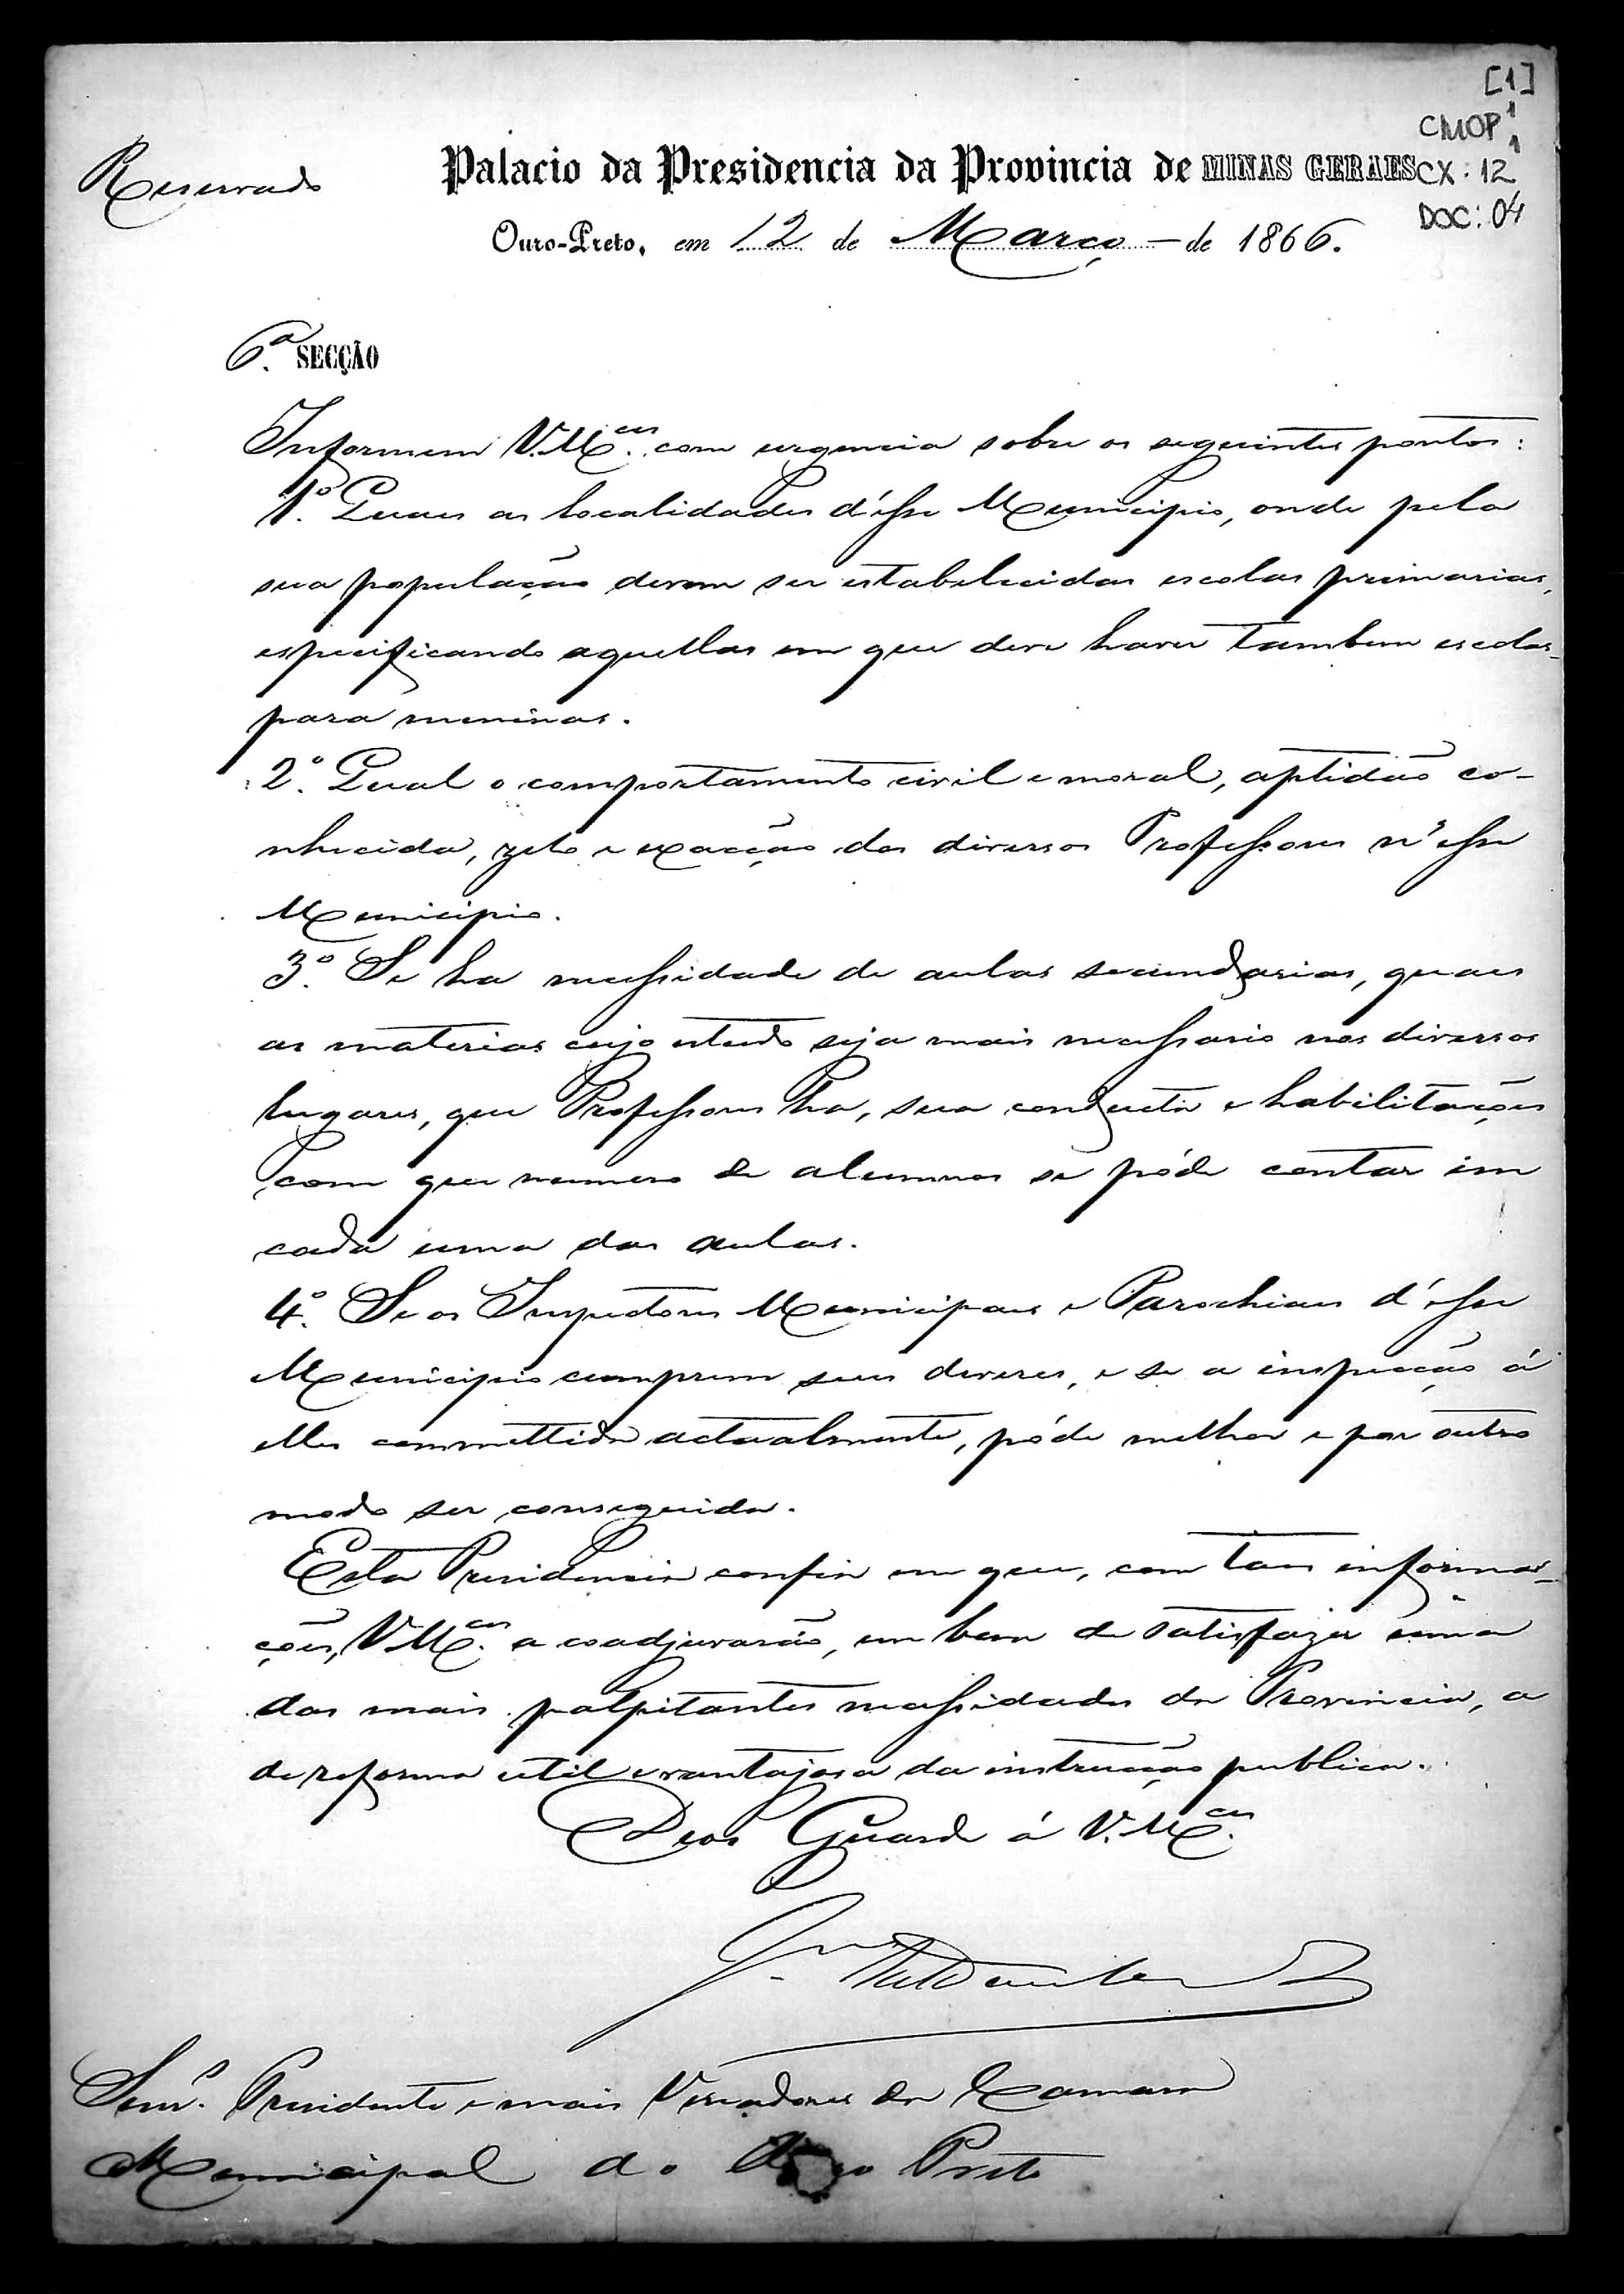 [1]
CMOP 1
1
CX: 12
DOC: 04
Reservado
Palacio da Presidencia da Provincia de MINAS GERAES
Ouro-Preto, em 12 de Março de 1866.
6.ª SECÇÃO
Informem V.M.ces com urgencia sobre os seguintes pontos:
1.º Quaes as localidades d'esse Municipio, onde pela
sua população devem ser estabelecidas escolas primarias,
especificando aquellas em que deve haver tambem escolas
para meninas.
2.º Qual o comportamento civil e moral, aptidão co-
nhecida, zelo e exacção dos diversos Professores n'esse
Municipio.
3.º Se ha necessidade de aulas secundarias, quaes
as materias cujo estudo seja mais necessario nos diversos
lugares, que Professores ha, sua conducta e habilitações
com que numero de alumnos se póde contar em
cada uma das aulas.
4.º Se os Inspectores Municipaes e Parochiaes d'esse
Municipio cumprem seus deveres, e se a inspecção á
elles commettida actualmente, póde melhor e por outro
modo ser conseguida.
Esta Presidencia confia em que, com taes informa-
ções, V.M.ces a coadjuvarão, em bem de satisfazer uma
das mais palpitantes necessidades da Provincia, a
de reforma util e vantajosa da instrucção publica.
Deos Guarde á V.M.ces
Senr.s Presidente e mais Vereadores da Camara
Municipal do Ouro Preto